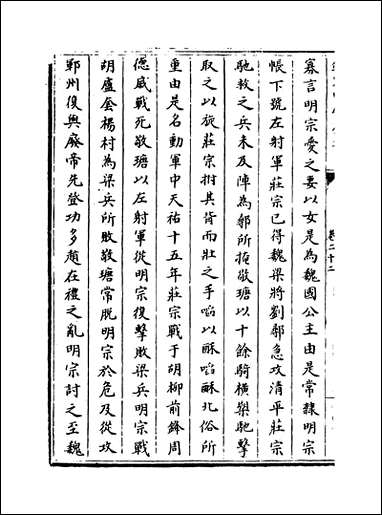 卷二十二
寡言明宗愛之妻以女是為魏國公主由是常隸明宗
帳下號左射軍莊宗已得魏梁將劉鄩急攻清平莊宗
馳救之兵未及陣為鄩所掩敬瑭以十餘騎橫槊馳擊
取之以旋莊宗拊其背而壯之手啗以酥啗酥北俗所
重由是名動軍中天祐十五年莊宗戰于胡柳前鋒周
德威戰死敬瑭以左射軍從明宗復擊敗梁兵明宗戰
胡盧套楊村為梁兵所敗敬瑭常脫明宗於危及從攻
鄆州復與廢帝先登功多趙在禮之亂明宗討之至魏